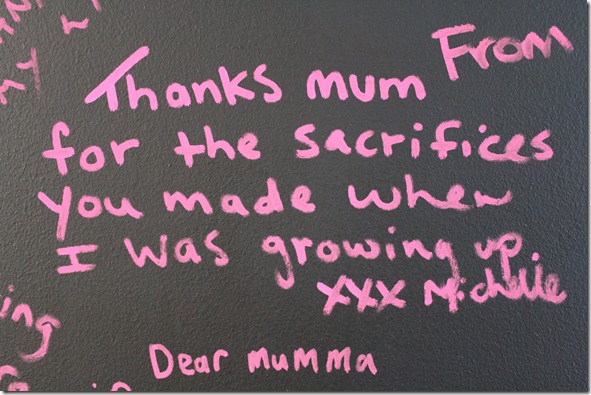 From
Thanks mum
for the sacrifices
you made when
I was growing up
xxx Michelle
ing
Dear mumma